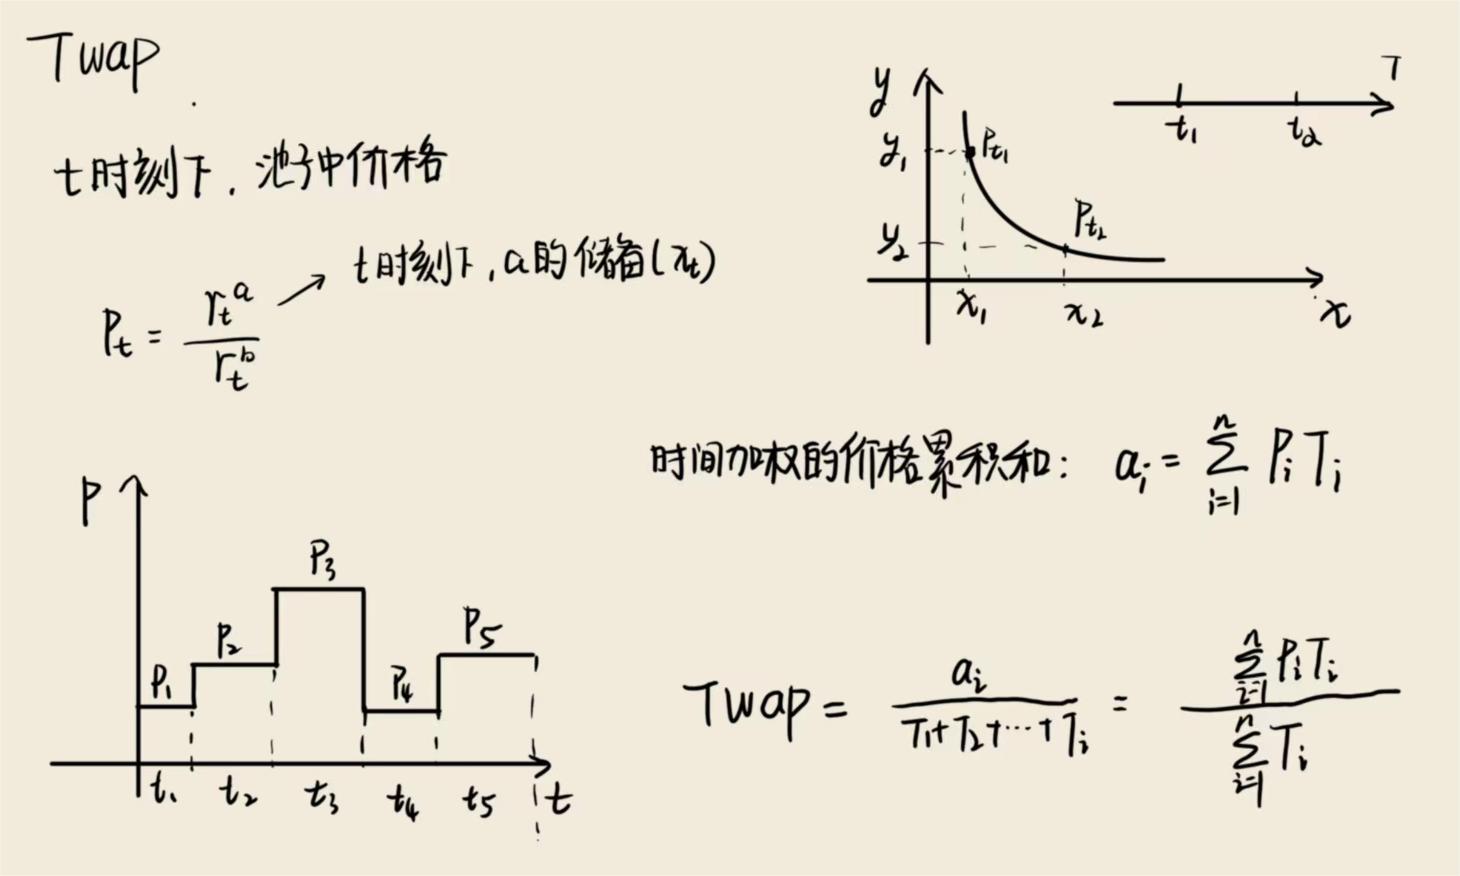 Twap
t时刻下，池子中价格
P_t = r_t^a / r_t^b
t时刻下，a的储备(x_t)
y
y₁
y₂
P_t₁
P_t₂
x₁
x₂
x
T
t₁
t₂
时间加权的价格累积和： a_i = Σ_{i=1}^{n} P_i T_i
P
P₁
P₂
P₃
P₄
P₅
t₁ t₂ t₃ t₄ t₅ t
Twap = a_i / (T₁+T₂+···+T_i) = Σ_{i=1}^{n} P_i T_i / Σ_{i=1}^{n} T_i